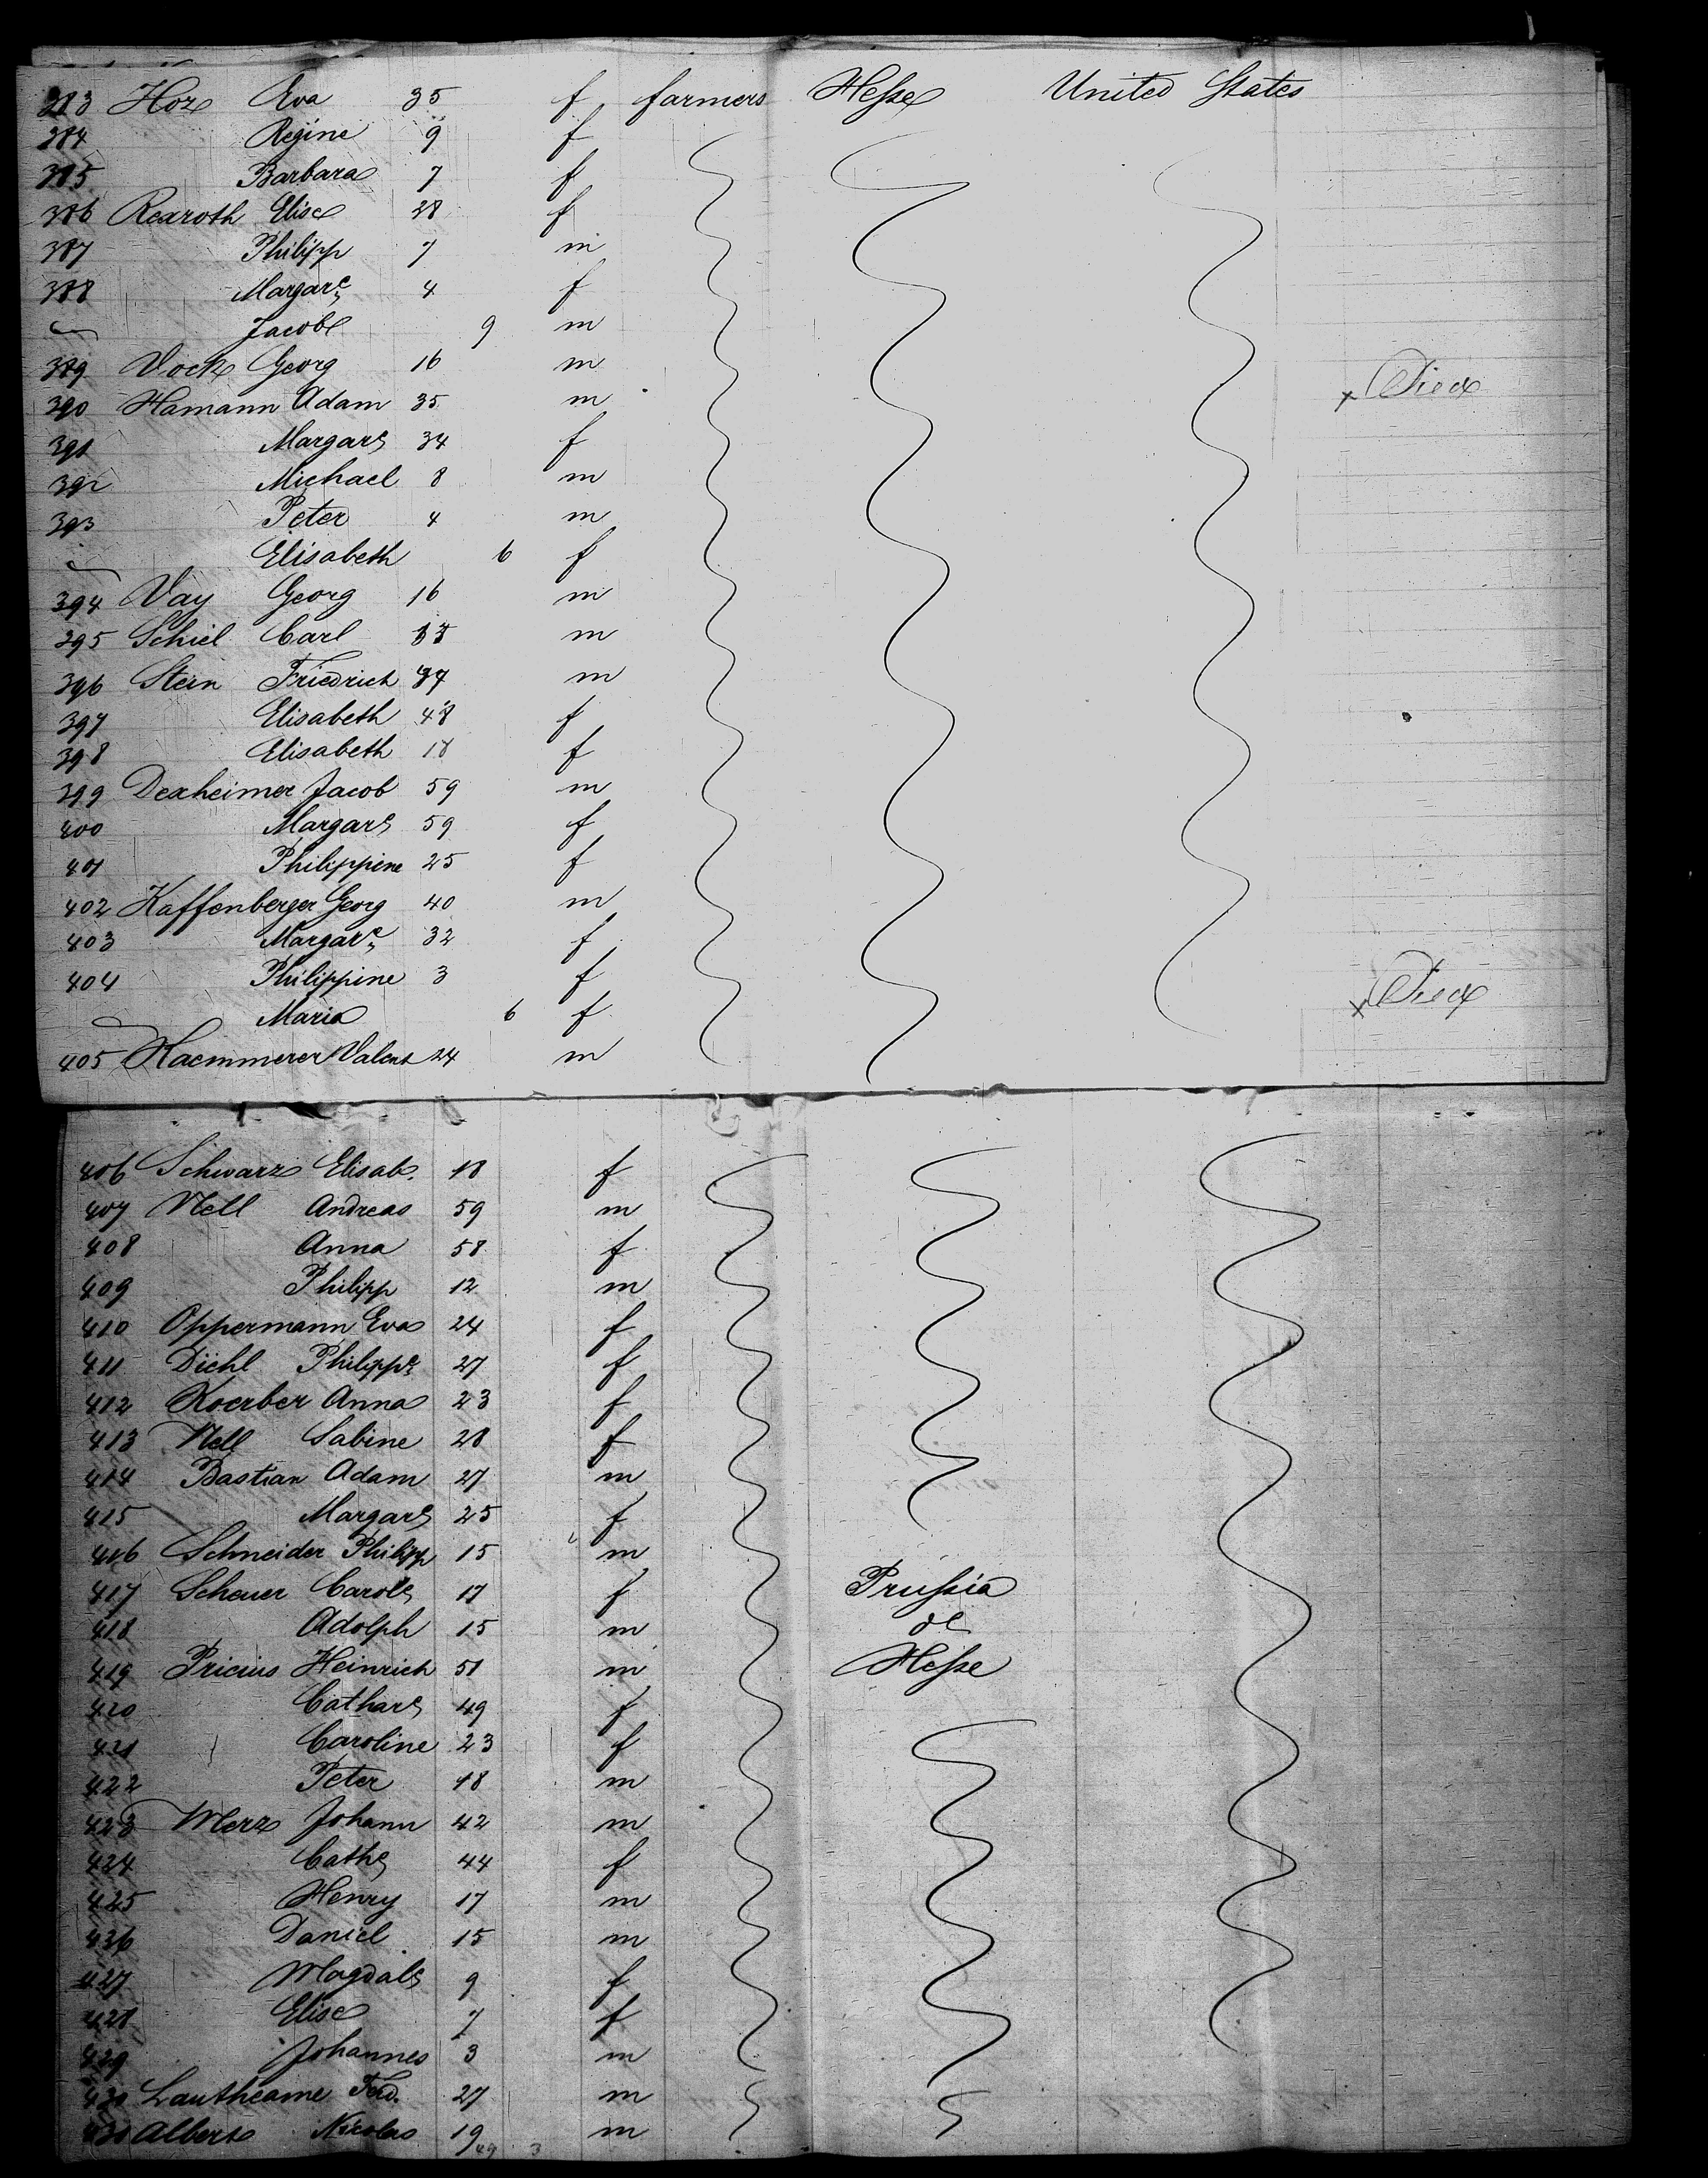 383 Horz Eva 35 f farmers Hesse United States
384 Regine 9 f
385 Barbara 7 f
386 Rexroth Elise 28 f
387 Philipp 7 m
388 Margare 4 f
Jacob 9 m
389 Vock Georg 16 m
390 Hamann Adam 35 m × Died
391 Margare 34 f
392 Michael 8 m
393 Peter 4 m
Elisabeth 6 f
394 Vay Georg 16 m
395 Schiel Carl m
396 Stein Friedrich m
397 Elisabeth 48 f
398 Elisabeth 18 f
399 Dexheimer Jacob 59 m
400 Margare 59 f
401 Philippine 25 f
402 Kaffenberger Georg 40 m
403 Margare 32 f
404 Philippine 3 f
Maria 6 f × Died
405 Kaemmerer Valent 24 m
406 Schwarz Elisab. 18 f
407 Nell Andreas 59 m
408 Anna 58 f
409 Philipp 12 m
410 Oppermann Eva 24 f
411 Diehl Philippe 27 f
412 Koerber Anna 23 f
413 Nell Sabine 28 f
414 Bastian Adam 27 m
415 Margare 25 f
416 Schneider Philipp 15 m
417 Scheuer Carole 17 f Prussia
418 Adolph 15 m do
419 Pricius Heinrich 51 m Hesse
420 Cathare 49 f
421 Caroline 23 f
422 Peter 18 m
423 Merz Johann 42 m
424 Cathe 44 f
425 Henry 17 m
426 Daniel 15 m
427 Magdale 9 f
428 Elise 7 f
429 Johannes 3 m
430 Lautheame Ferd. 27 m
Albers Nicolas 19 m
49 3